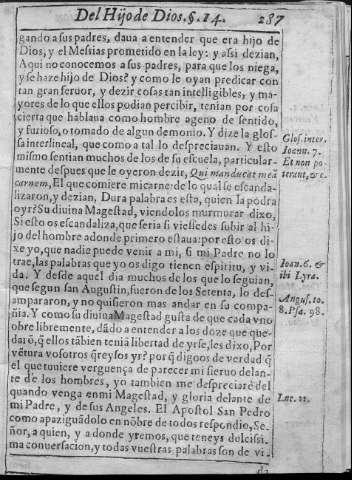 Del Hijo de Dios. §. 14. 287
gando a sus padres, daua a entender que era hijo de
Dios, y el Messias prometido en la ley: y assi dezian,
Aqui no conocemos a sus padres, para que los niega,
y se haze hijo de Dios? y como le oyan predicar con
tan gran feruor, y dezir cosas tan intelligibles, y ma-
yores de lo que ellos podian percibir, tenian por cosa
cierta que hablaua como hombre ageno de sentido,
y furioso, o tomado de algun demonio. Y dize la glos-
sa interlineal, que como a tal lo despreciauan. Y esto
mismo sentian muchos de los de su escuela, particular-
mente despues que le oyeron dezir, Qui manducat meã
carnem, El que comiere mi carne: de lo qual se escanda-
lizaron, y dezian, Dura palabra es esta, quien la podra
oyr? Su diuina Magestad, viendolos murmurar dixo,
Si esto os escandaliza, que seria si viessedes subir al hi-
jo del hombre adonde primero estaua: por esto os di-
xe yo, que nadie puede venir a mi, si mi Padre no lo
trae, las palabras que yo os digo tienen espiritu, y vi-
da. Y desde aquel dia muchos de los que lo seguian,
que segun san Augustin, fueron de los Setenta, lo des-
ampararon, y no quisieron mas andar en su compa-
ñia. Y como su diuina Magestad gusta de que cada vno
obre libremente, dãdo a entender a los doze que que-
darõ, q̃ ellos tãbien teniã libertad de yrse, les dixo, Por
vẽtura vosotros q̃reys os yr? por q̃ digo os de verdad q̃
el que tuuiere verguença de parecer mi sieruo delan-
te de los hombres, yo tambien me despreciarè del
quando venga en mi Magestad, y gloria delante de
mi Padre, y de sus Angeles. El Apostol San Pedro
como apaziguãdolo en nõbre de todos respondio, Se-
ñor, a quien, y a donde yremos, que teneys dulcissi-
ma conuersacion, y todas vuestras palabras son de vi-
da
Glos. inter.
Ioann. 7.
Et non po
terant, &c.
Ioan. 6. &
ibi Lyra.
August. to.
8. Psa. 98.
Luc. 12.